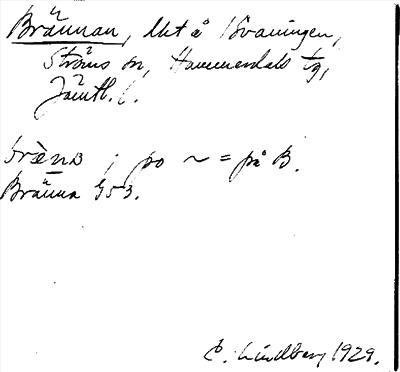 Brännan, lht å Isvaningen,
Ströms sn, Hammerdals tg,
Jämtl. l.
bræna ; po ~ = på B.
Bränna G53.
E. Lindberg 1929.